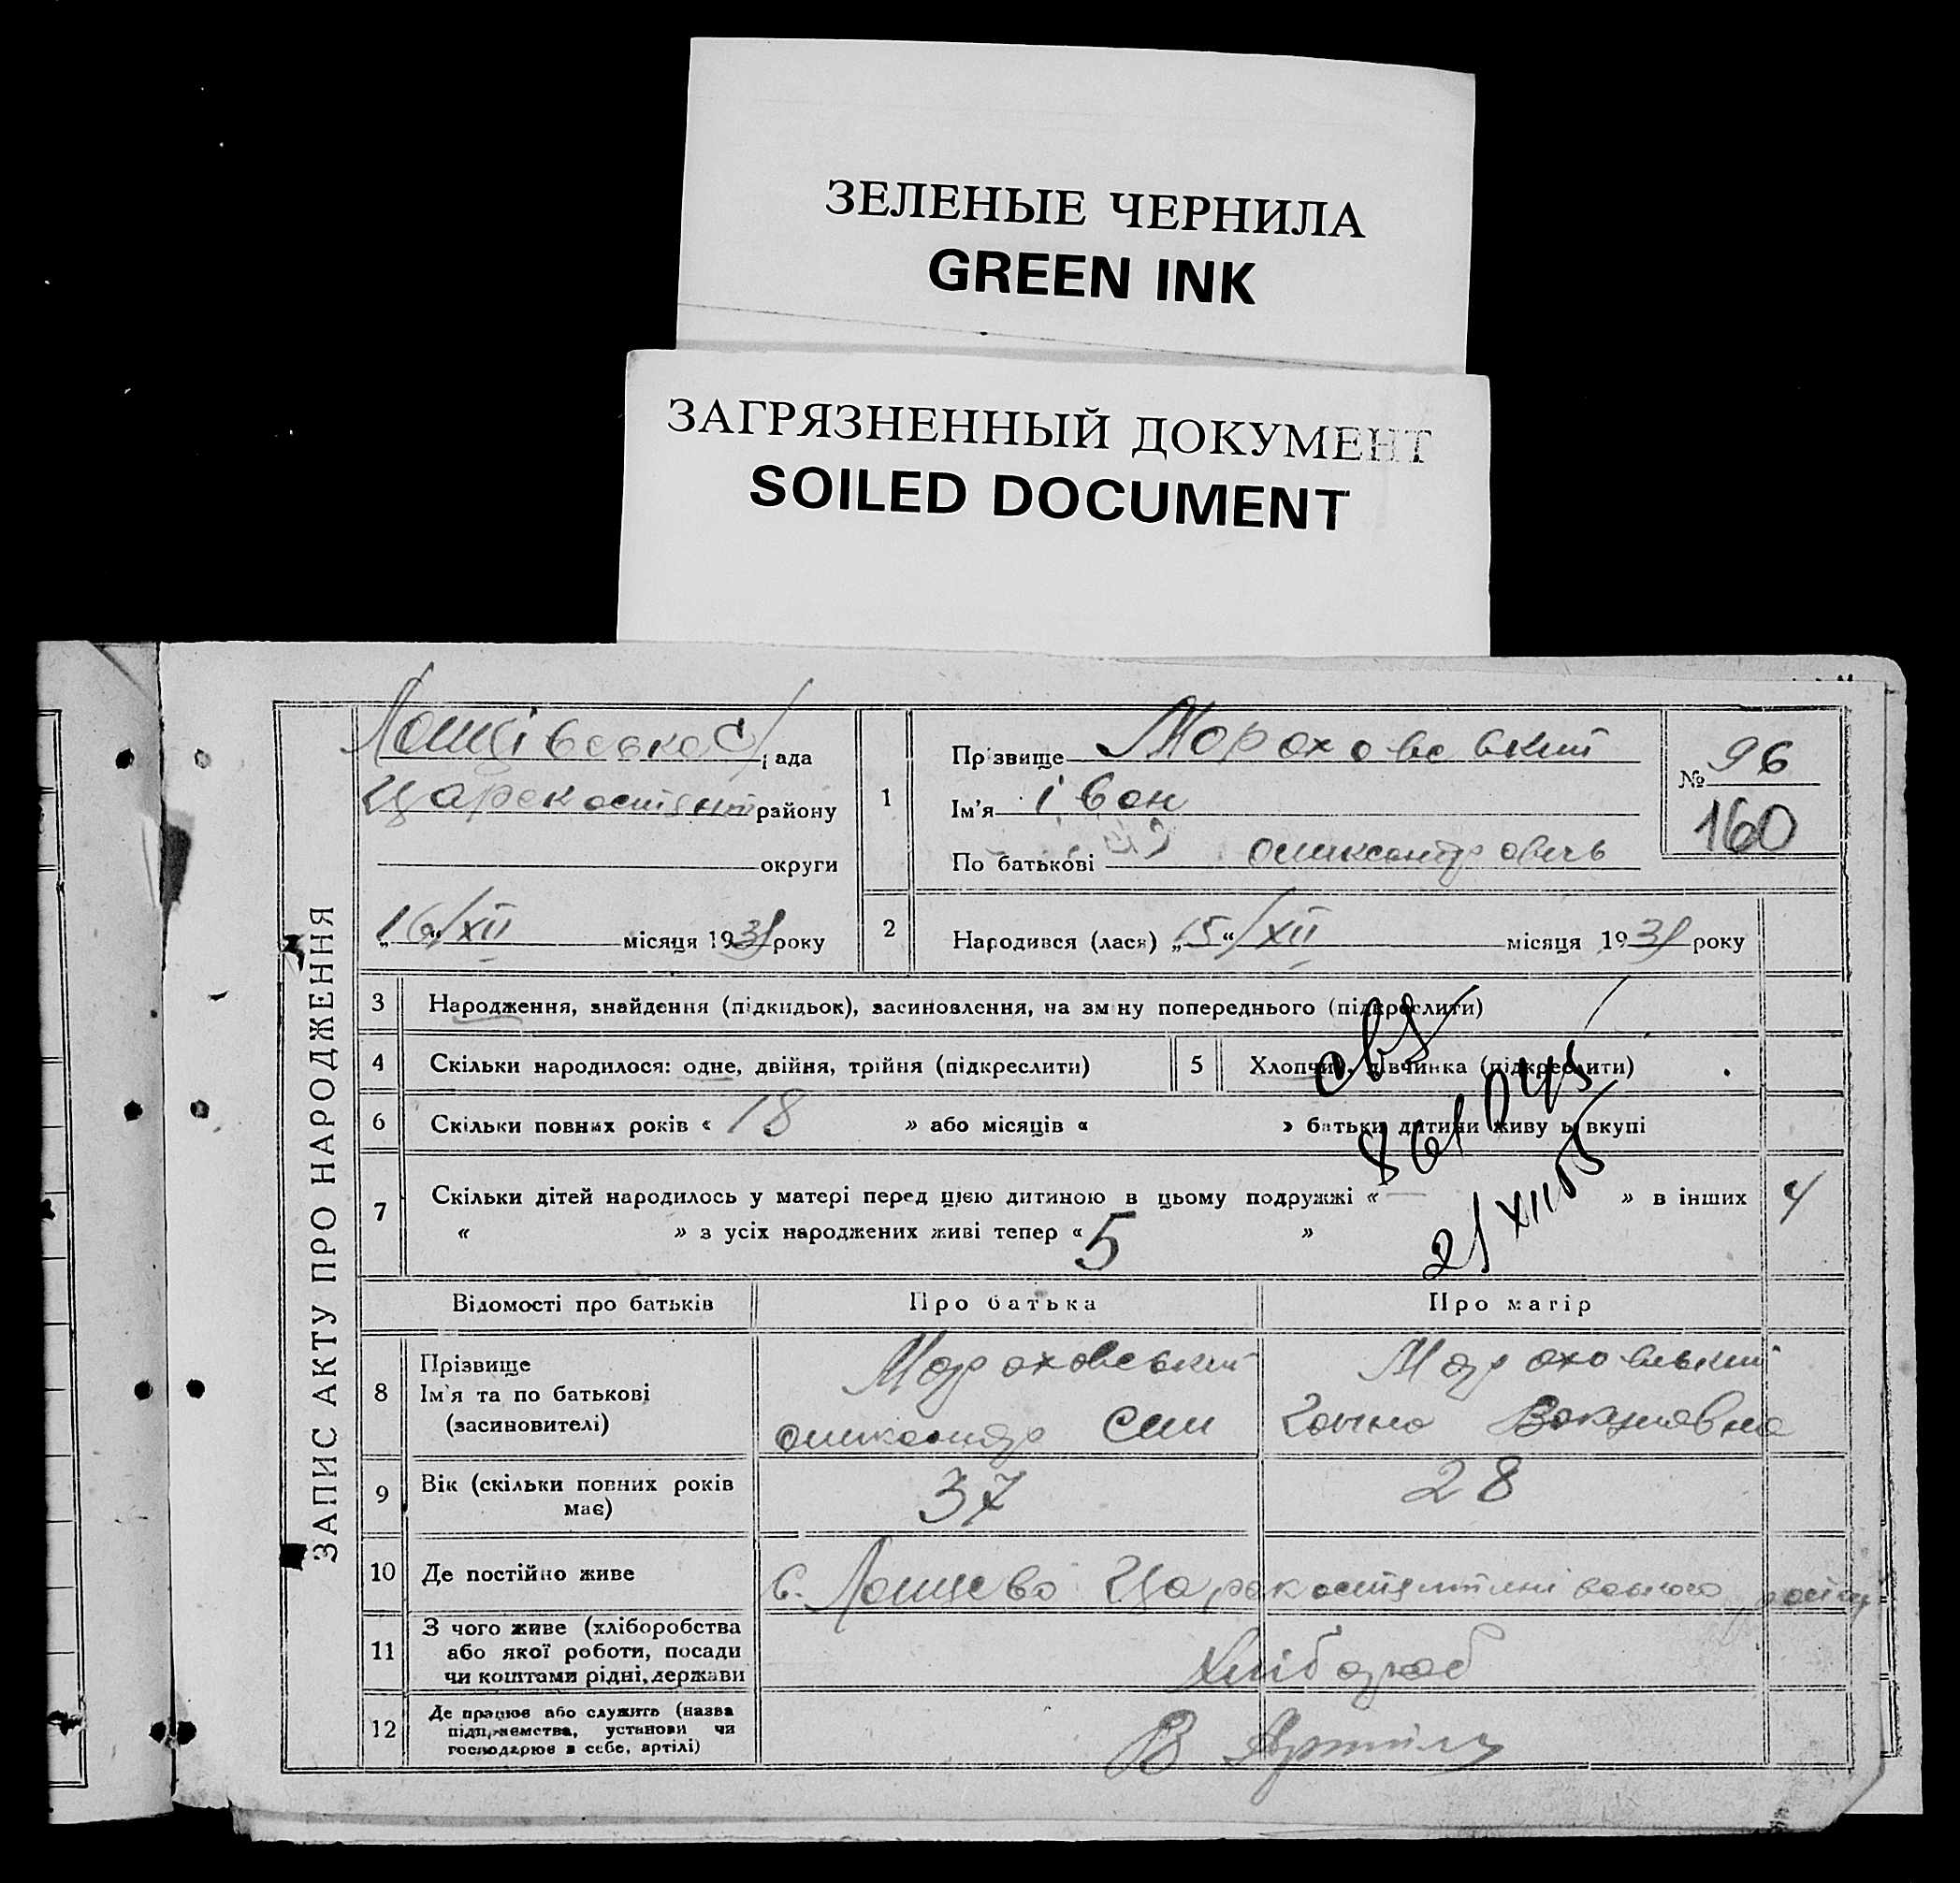 ЗЕЛЕНЫЕ ЧЕРНИЛА
GREEN INK
ЗАГРЯЗНЕННЫЙ ДОКУМЕНТ
SOILED DOCUMENT
ЗАПИС АКТУ ПРО НАРОДЖЕННЯ
Лощівська с/рада
району
округи
„16“/XII місяця 1931 року
1
Прізвище Мороховський
Ім'я Іван
По батькові
№ 96
160
2
Народився (лася) „15“/XII місяця 1931 року
3 Народження, знайдення (підкидьок), засиновлення, на зміну попереднього (підкреслити)
4 Скільки народилося: одне, двійня, трійня (підкреслити)
5 Хлопчик, дівчинка (підкреслити)
6 Скільки повних років « 18 » або місяців « » батьки дитини живуть вкупі
7 Скільки дітей народилось у матері перед цією дитиною в цьому подружжі « — » в інших 4
« » з усіх народжених живі тепер « 5 »
21 XII
Відомості про батьків
Про батька
Про матір
8 Прізвище
Ім'я та по батькові
(засиновителі)
Мороховський
Мороховський
9 Вік (скільки повних років
має)
37
28
10 Де постійно живе
с. Лощево
11 З чого живе (хліборобства
або якої роботи, посади
чи коштами рідні, держави
Хлібороб
12 Де працює або служить (назва
підприємства, установи чи
господарює в себе, артілі)
В Артілі